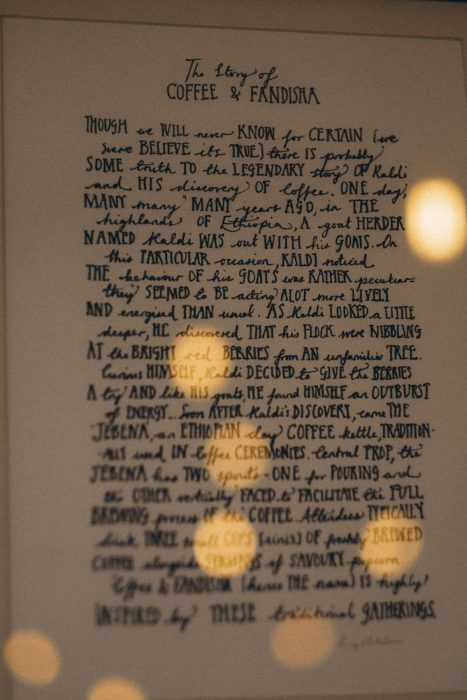 The Story of
COFFEE & FANDISHA
THOUGH we WILL never KNOW for CERTAIN (we
sure BELIEVE its TRUE) there IS probably
SOME truth TO the LEGENDARY story OF Kaldi
and HIS discovery OF Coffee. ONE day,
MANY many MANY years AGO, in THE
highlands OF Ethiopia, A goat HERDER
NAMED Kaldi WAS out WITH his GOATS. On
this PARTICULAR occasion, KALDI noticed
THE behaviour OF his GOATS was RATHER peculiar-
they SEEMED to BE acting ALOT more LIVELY
AND energised THAN usual. AS Kaldi LOOKED a LITTLE
deeper, HE discovered THAT his FLOCK were NIBBLING
AT the BRIGHT red BERRIES from AN unfamiliar TREE.
Curious HIMSELF, Kaldi DECIDED to GIVE the BERRIES
A try AND like HIS goats, HE found HIMSELF an OUTBURST
of ENERGY. Soon AFTER Kaldi's DISCOVERY, came THE
'JEBENA', an ETHIOPIAN clay COFFEE kettle, TRADITION-
ALLY used IN Coffee CEREMONIES. Central PROP, the
JEBENA has TWO spouts - ONE for POURING and
the OTHER vertically FACED to FACILITATE the FULL
BREWING process OF the COFFEE. Attendees TYPICALLY
drink THREE small CUPS (sinis) OF freshly BREWED
COFFEE alongside of SAVOURY popcorn.
Coffee & FANDISHA (hence THE name) IS highly
INSPIRED by THESE traditional GATHERINGS.